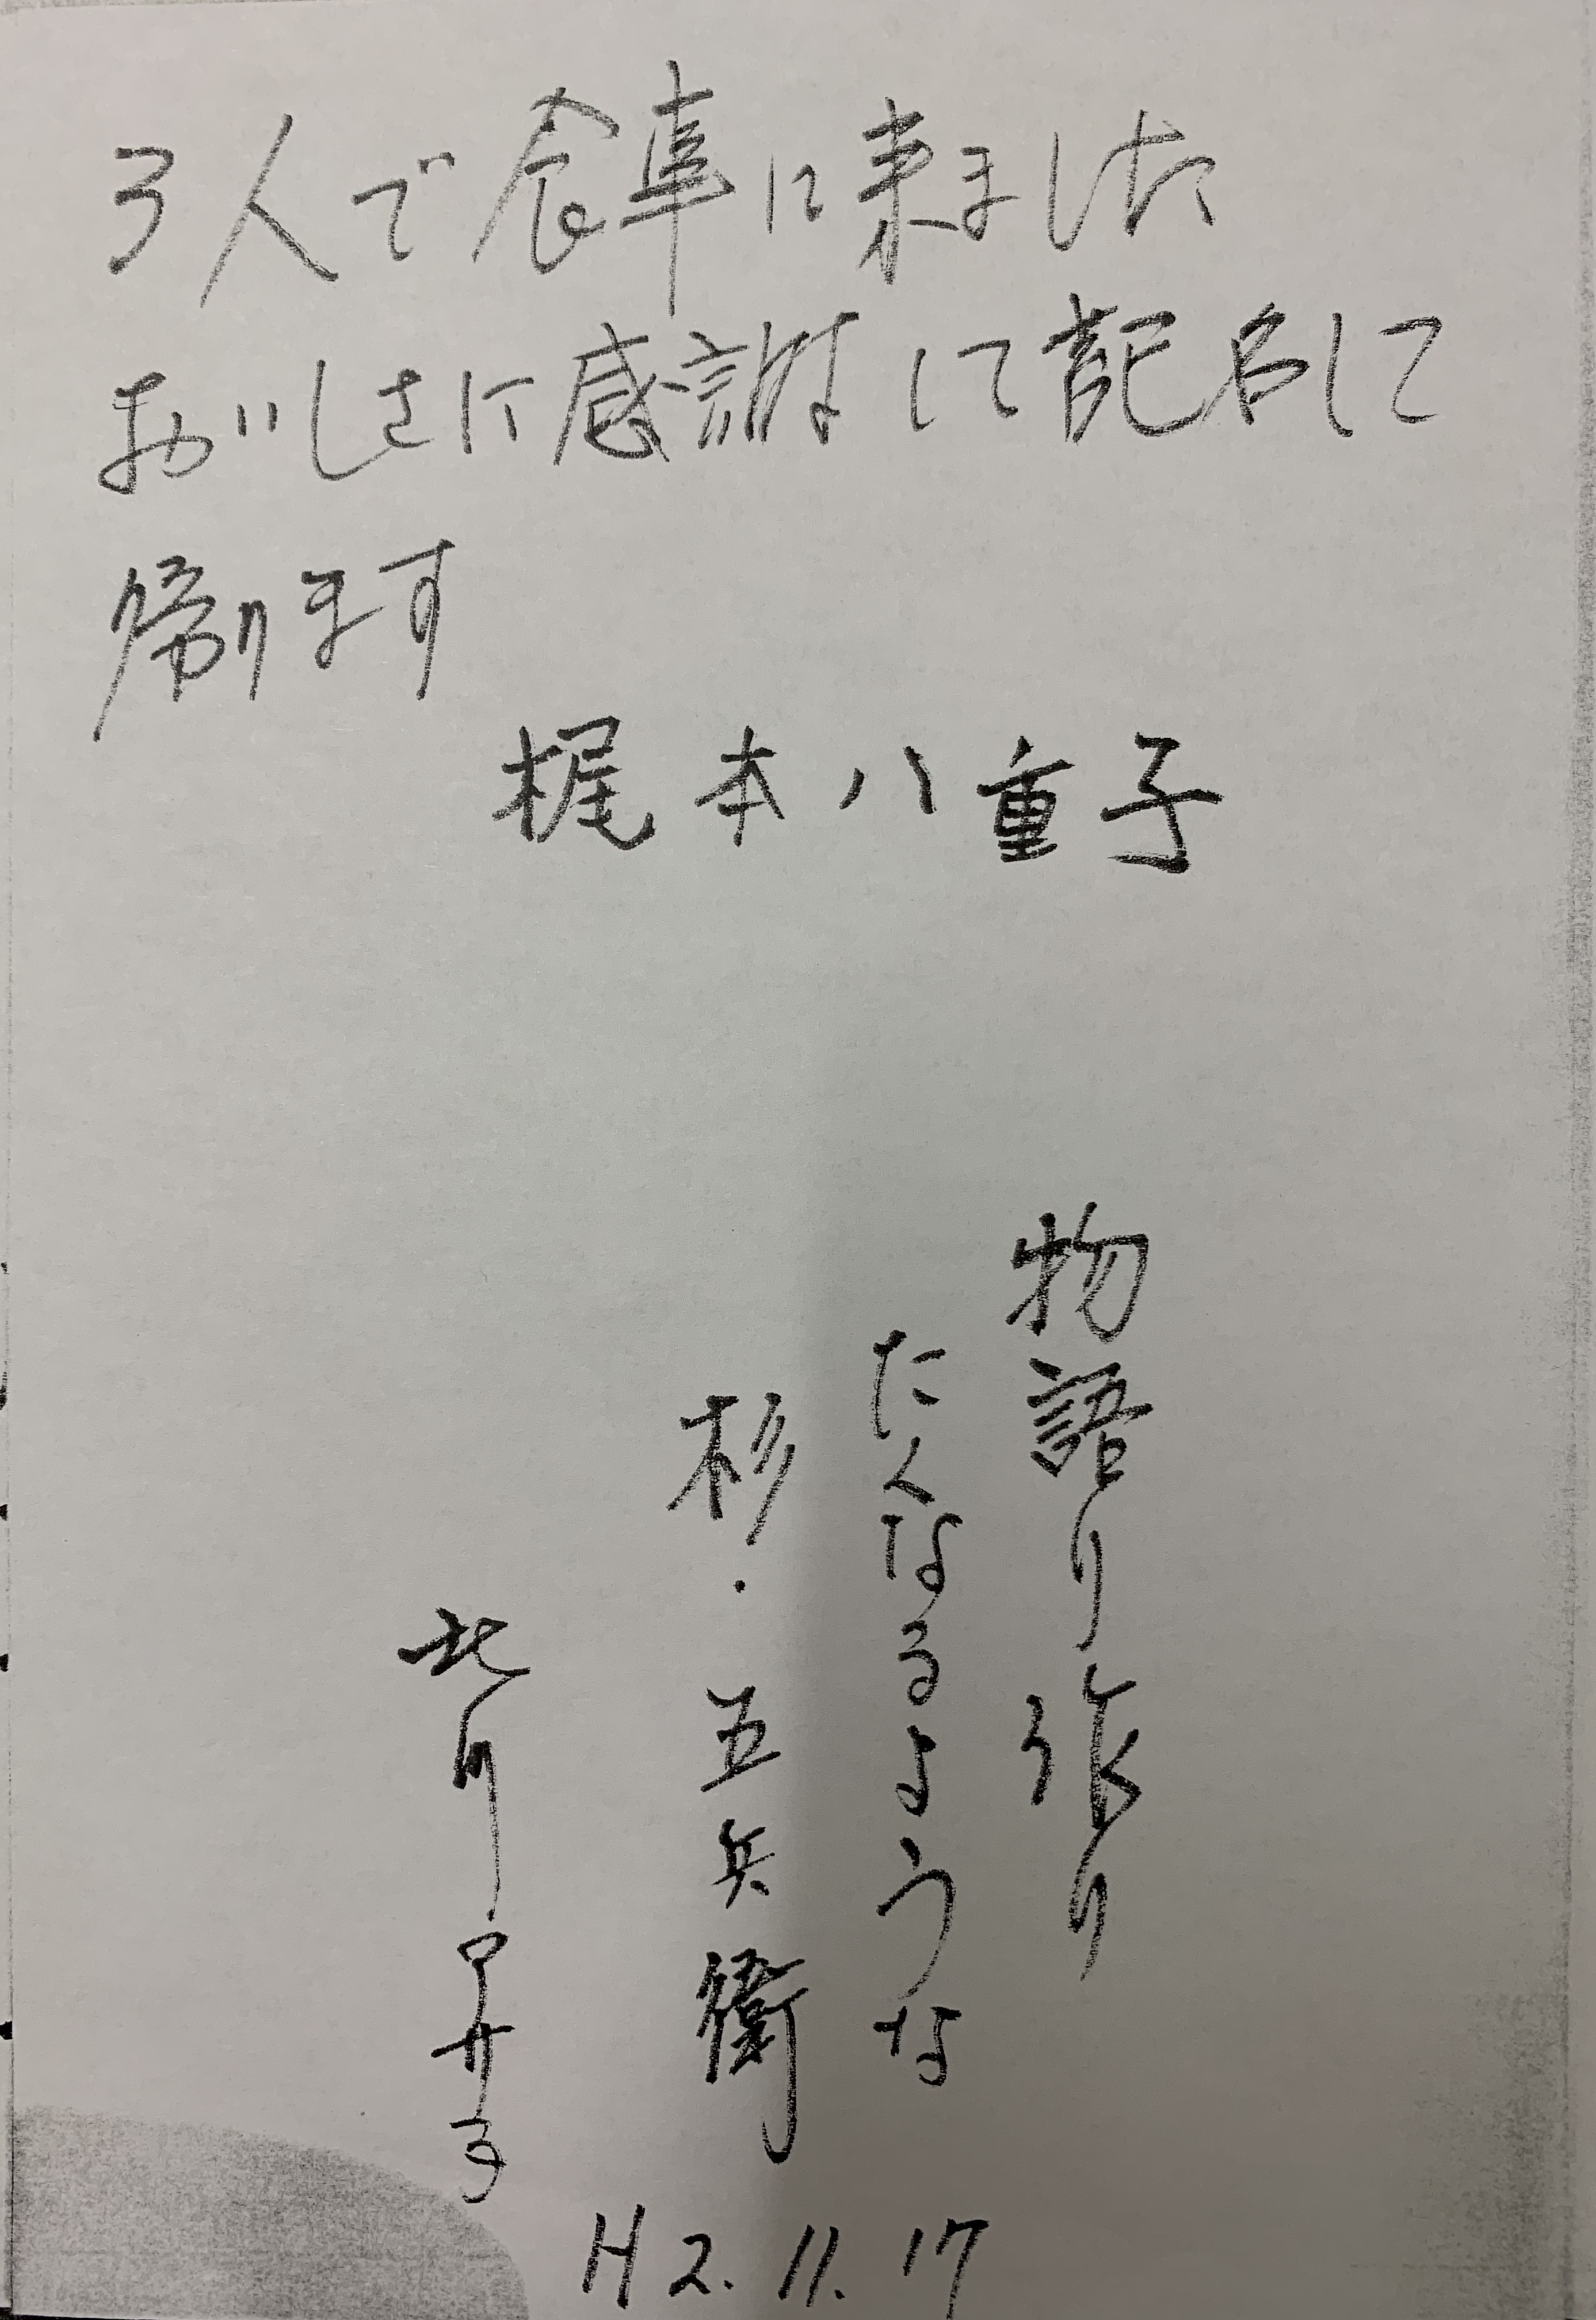 3人で食事に来ました
おいしさに感謝して記名して
帰ります
梶本八重子
物語り作り
たくなるような
杉・五兵衛
北川
H2.11.17